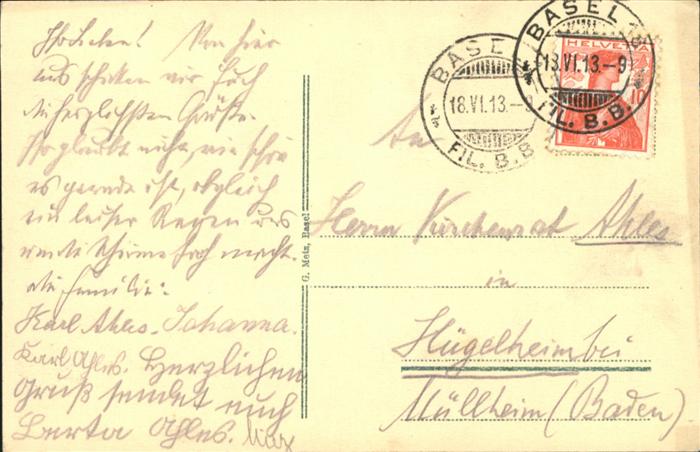 Ihr Lieben! Von hier
aus schicken wir Euch
die herzlichsten Grüße.
Ihr glaubt nicht, wie schön
es gerade ist, obgleich
ein leiser Regen uns
die Familie:
Karl Ahles. Johanna.
Karl Ahles. Herzlichen
Gruß sendet euch
Berta Ahles. Max
G. Metz, Basel
BASEL
18.VI.13.–9
FIL. B.B.
BASEL 18
18.VI.13.–9
FIL. B.B.
HELVETIA
10
An
Herrn Kirchenrat Ahles
in
Hügelheim bei
Müllheim (Baden)